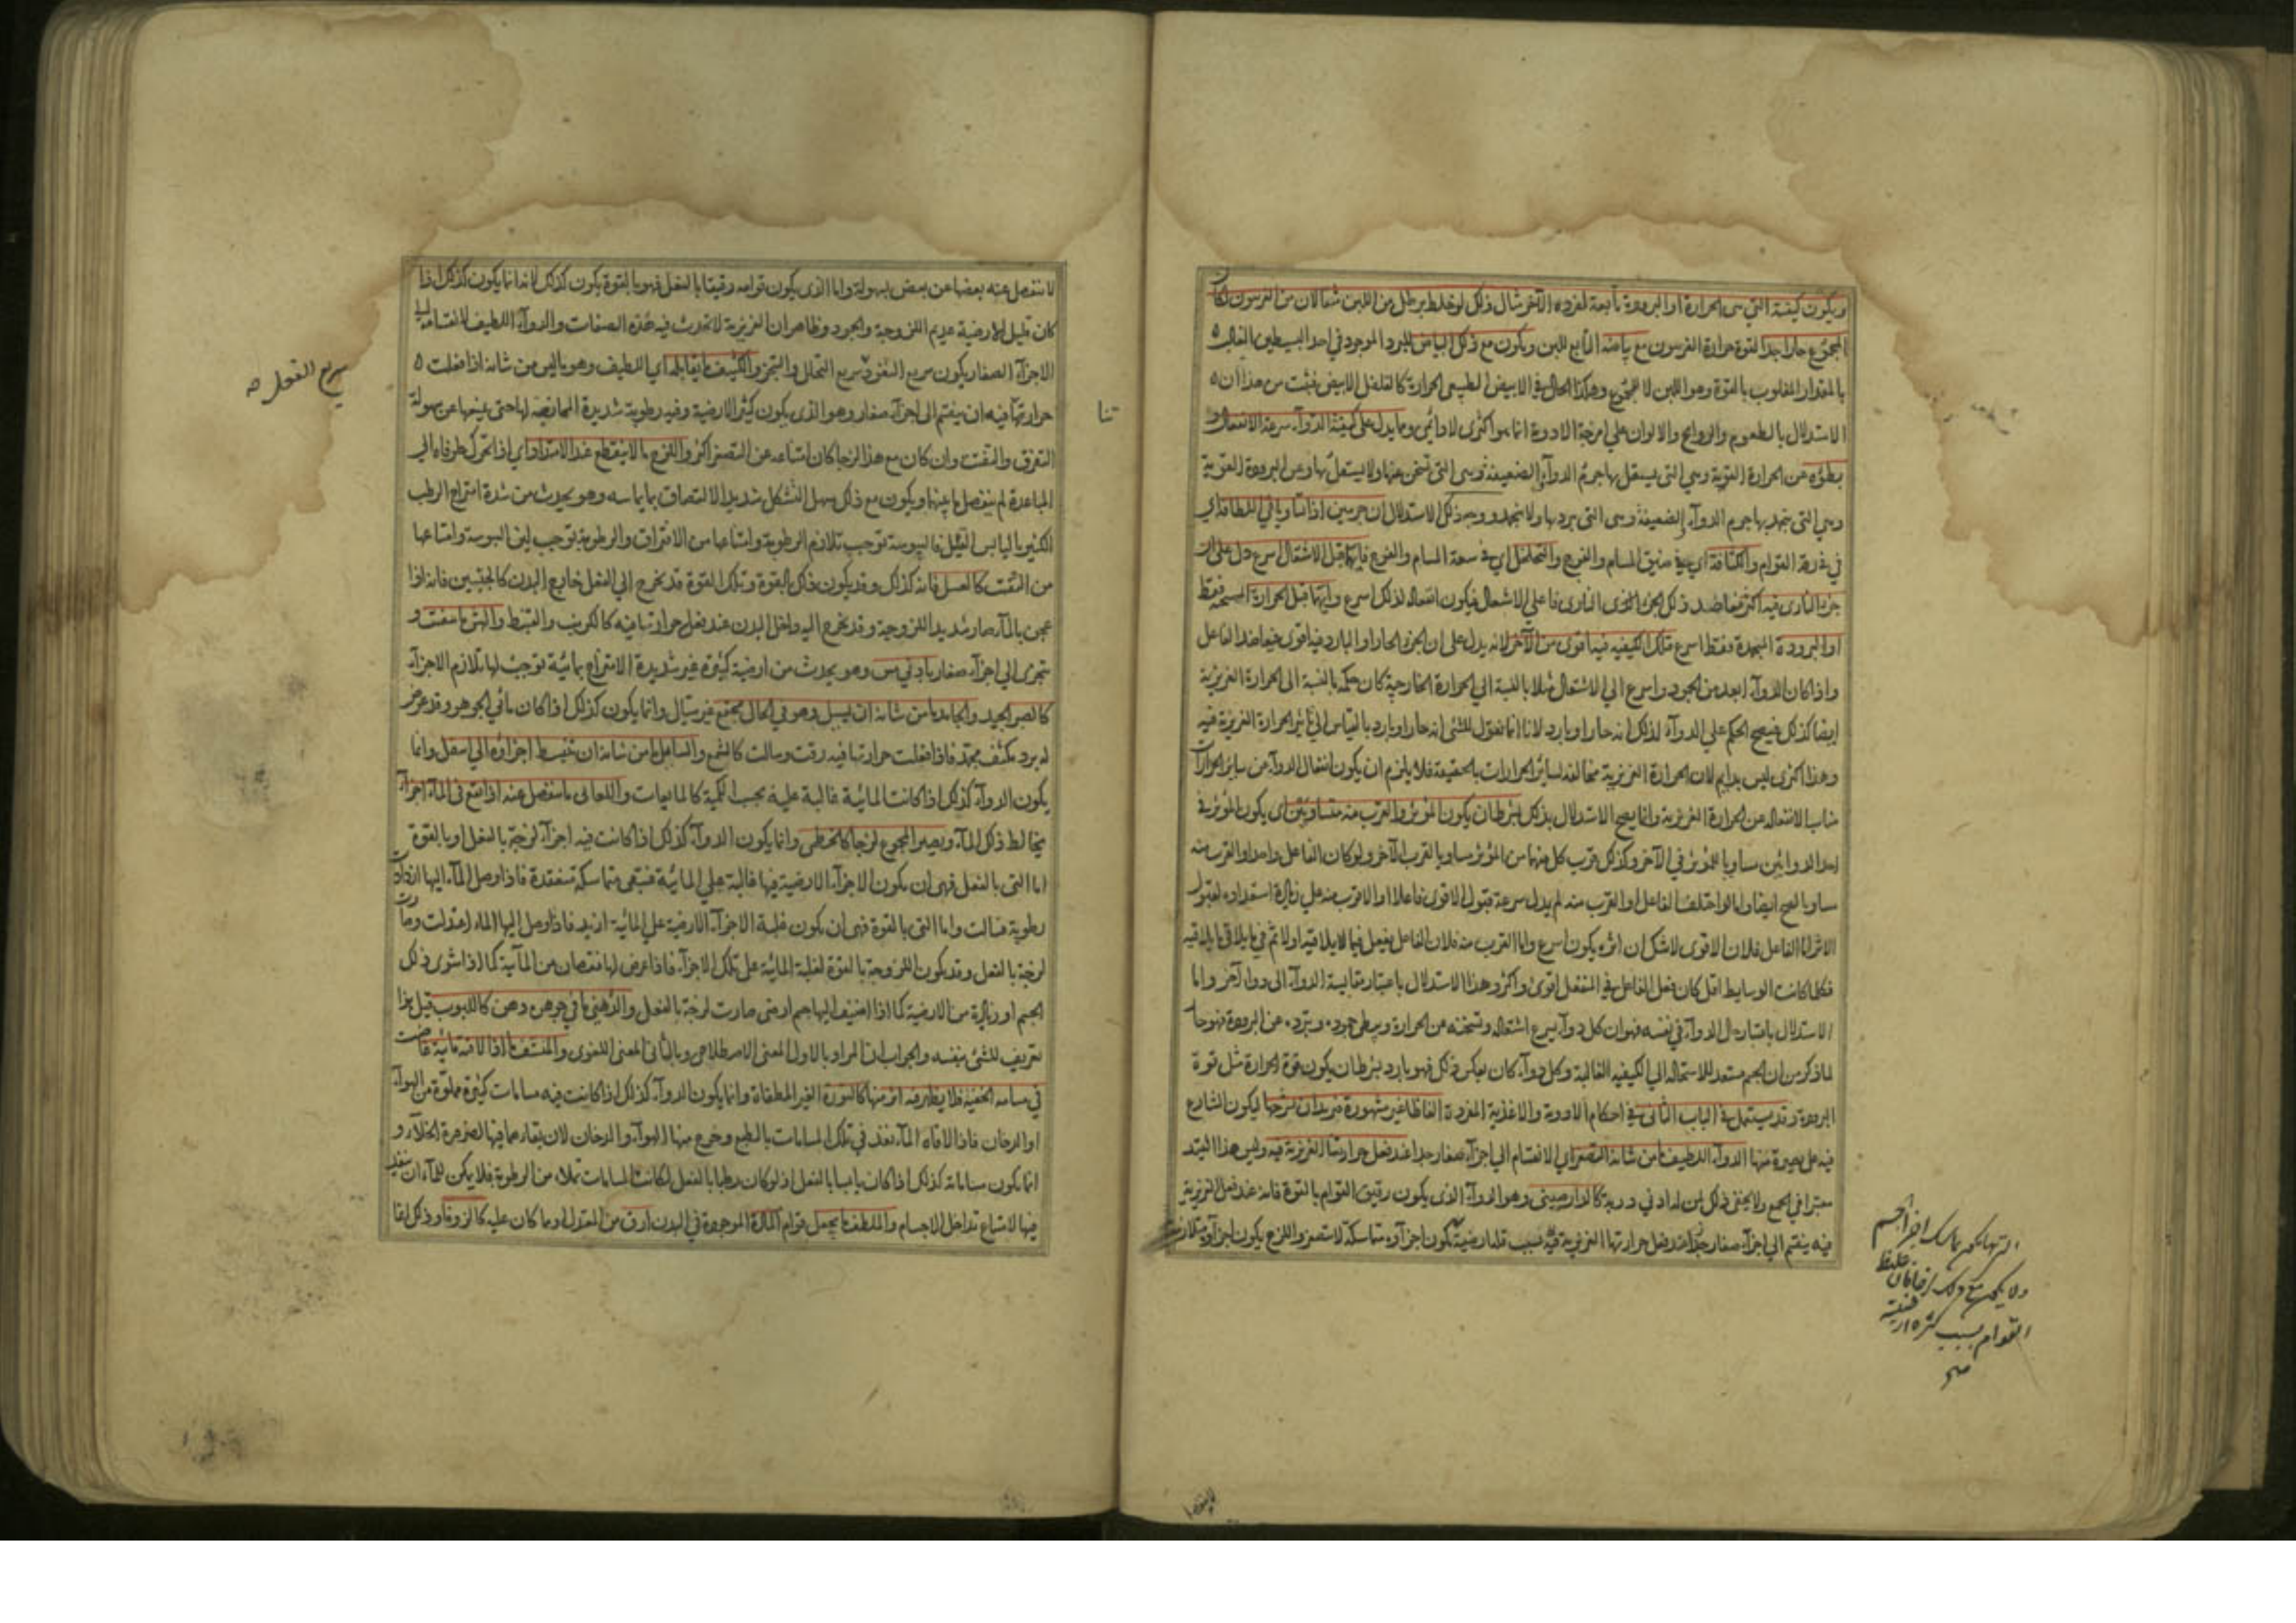 ويكون كيفيته التي هي الحرارة او البرودة تابعة لمفرده الآخر مثال ذلك لو خلط برطل من اللبن مثقالان من الفربيون لكان
المجموع حارا جدا لقوة حرارة الفربيون مع بياضه التابع للبن ويكون مع ذلك البياض للبرد الموجود في احد البسيطين الغالب
بالمقدار المغلوب بالقوة وهو اللبن لا للمجموع وهكذا الحال في الابيض الطبيعي الحرارة كالفلفل الابيض فثبت من هذا ان
الاستدلال بالطعوم والروايح والالوان على امزجة الادوية انما هو اكثرى لا دائمى ومما يدل على كيفية الدوآء سرعة الانفعال و
بطؤه عن الحرارة القوية وهي التى يستعل بها جرم الدوآء والضعيفة وهى التى تسخن عنها ولا يشتعل بها وعن البرودة القوية
وهى التى يجمد بها جرم الدوآء والضعيفة وهى التى يبرد بها ولا يجمد ووجه ذلك الاستدلال ان جرمين اذا تساويا في اللطافة اي
في رقة القوام والكثافة اي في ضيق المسام والفرج والتخلخل اي في سعة المسام والفرج فايهما قبل الاشتعال اسرع دل على ان
جزء النارى فيه اكثر فعاضد ذلك الجزء النارى فاعل الاشتعال فيكون انفعاله لذلك اسرع وايهما قبل الحرارة المسخنة فقط
او البرودة المجمدة فقط اسرع فتلك الكيفيه فيه اقوى من الآخر لانه يدل على ان الجزء الحار او البارد فيه اقوى فيعاضد الفاعل
واذا كان الدوآء ابعد من الجمود واسرع الي الاشتعال مثلا بالنسبة الي الحرارة الخارجية كان حكمه بالنسبة الى الحرارة الغريزية
ايضا كذلك فيصح الحكم علي الدوآء لذلك انه حار او بارد لانا انما نقول للشئ انه حار او بارد بالقياس الي تاثير الحرارة الغريزية فيه
وهذا اكثرى ليس بدايم لان الحرارة الغريزية مخالفة لسائر الحرارات بالحقيقة فلا يلزم ان يكون انفعال الدوآء من ساير الحرارات
مشابه الانفعاله عن الحرارة الغريزية وانما يصح الاستدلال بذلك بشرط ان يكون المؤثر والقرب منه متساويين اي يكون المؤثر في
احد الدوائين مساويا للمؤثر في الآخر وكذلك قرب كل منهما من المؤثر مساويا لقرب الآخر ولو كان الفاعل واحدا والقرب منه
مساويا لصح ايضا واما لو اختلف الفاعل او القرب منه لم يدل سرعة قبول الاقوى فاعلا او الاقرب منه علي زيادة استعداده لقبول
الاثر اما الفاعل فلان الاقوى لا شك ان اثره يكون اسرع واما القرب منه فلان الفاعل يفعل فيما يلاقيه اولا ثم في ما يلاقي ما يلاقيه
فكلما كانت الوسايط اقل كان فعل الفاعل في المنفعل اقوى واكثر وهذا الاستدلال باعتبار مقايسة الدوآء الى دوا آخر واما
الاستدلال باعتبار حال الدوآء في نفسه فهو ان كل دوآء يسرع اشتعاله وتسخنه عن الحرارة ويبطئ جموده وتبرده عن البرودة فهو حار
لما ذكر من ان الجسم مستعد للاستحالة الي الكيفيه الغالبة وكل دوآء كان بعكس ذلك فهو بارد بشرط ان يكون قوة الحرارة مثل قوة
البرودة وقد يستعمل في الباب الثانى في احكام الادوية والاغذية المفردة الفاظا غير مشهورة فنريد ان نشرحها ليكون الشارع
فيه على بصيرة فمنها الدوآء اللطيف ما من شانه التصغر اي الانقسام الي اجزآء صغار جدا عند فعل حرارتنا الغريزية فيه وليس هذا القيد
معتبرا في الجميع ولا يخفى ذلك لمن له ادنى دربة كالدارصينى وهو الدوآء الذى يكون رقيق القوام بالقوة فانه عند فعل الغريزية
فيه ينقسم الي اجزآء صغار جدا عند فعل حرارتها الغريزية فيه بسبب قلة ارضيته لا يكون اجزآوه متماسكة لا تتصغر واللزج يكون اجزآوه متلازمة
القوام بسبب كثرة ارضيته
صح
لا تنفصل عنه بعضها عن بعض بسهولة واما الذى يكون قوامه رقيقا بالفعل فهو بالقوة يكون كذلك لانه انما يكون كذلك اذا
كان قليل الارضية عديم اللزوجة والجمود وظاهر ان الغريزية لا تحدث فيه هذه الصفات والدوآء اللطيف لانقسامه الي
الاجزآء الصغار يكون سريع النفوذ سريع التحلل والتبخر والكثيف ما يقابله اي اللطيف وهو ما ليس من شانه اذا فعلت
حرارتنا فيه ان ينقسم الى اجزآء صغار وهو الذى يكون كثير الارضية وفيه رطوبة شديدة الممازجة لها حتى يمنعها عن سهولة
التفرق والتفتت وان كان مع هذا لزجا كان امتناعه عن التصغر اكثر واللزج ما لا ينقطع عند الامتداد اي اذا تحرك طرفاه الي
المباعدة لم ينفصل ما بينهما ويكون مع ذلك سهل التشكل شديد الالتصاق بما يماسه وهو يحدث من شدة امتزاج الرطب
الكثير باليابس القليل فاليبوسة توجب تلازم الرطوبة وامتناعها من الافتراق والرطوبة توجب لين اليبوسة وامتناعها
من التفتت كالعسل فانه كذلك وقد يكون ذلك بالقوة وتلك القوة قد يخرج الي الفعل خارج البدن كالجبسين فانه اذا
عجن بالمآء صار شديد اللزوجة وقد يخرج اليه داخل البدن عند فعل حرارتنا فيه كالكرنب والقنبيط والهش ما يتفتت و
يتجزى الي اجزآء صغار بادني مس وهو يحدث من ارضية كثيرة غير شديدة الامتزاج بمائية توجب لها تلازم الاجزآء
كالصبر الجيد والجامد ما من شانه ان يسيل وهو في الحال مجتمع غير سيّال وانما يكون كذلك اذا كان مائي الجوهر وقد عرض
له برد مكثف مجمد فاذا فعلت حرارتنا فيه رقت وسالت كالشمع والسايل ما من شانه ان تنبسط اجزاؤه الي اسفل وانما
يكون الدوآء كذلك اذا كانت المائية غالبة عليه بحسب الكمية كالمايعات واللعابى ما ينفصل عنه اذا نقع في المآء اجزآء
يخالط ذلك المآء ويصير المجموع لزجا كالخطمى وانما يكون الدوآء كذلك اذا كانت فيه اجزآء لزجة بالفعل او بالقوة
اما التى بالفعل فهي ان يكون الاجزآء الارضية فيها غالبة علي المائية فتبقى متماسكة منعقدة فاذا وصل المآء اليها ازدادت
رطوبة فسالت واما التى بالقوة فهي ان يكون غلبة الاجزآء الارضية علي المائية ازيد فاذا وصل اليها المآء اعتدلت وصارت
لزجة بالفعل وقد يكون اللزوجة بالقوة لغلبة المائية على تلك الاجزآء فاذا عرض لها نقصان من المآئية كما اذا شوى ذلك
الجسم او زيادة من الارضية كما اذا اضيف اليها جسم ارضى صارت لزجة بالفعل والدهني ما في جوهره دهن كاللبوب قيل هذا
تعريف للشئ بنفسه والجواب ان المراد بالاول المعنى الاصطلاحي وبالثانى المعنى اللغوى والمنشف ما اذا لاقته مائية غاصت
في مسامه الخفية فلا يظهر فيه اثر منها كالنورة الغير المطفاة وانما يكون الدوآء كذلك اذا كانت فيه مسامات كثيرة مملوة من الهوآء
او الدخان فاذا لاقاه المآء نفذ في تلك المسامات بالطبع وخرج منها الهوآء والدخان لان بقاءهما فيها لضرورة الخلآء و
انما يكون مساماته كذلك اذا كان يابسا بالفعل اذ لو كان رطبا بالفعل لكانت المسامات تملاء من الرطوبة فلا يمكن للمآء ان ينفذ
فيها لامتناع تداخل الاجسام والملطف ما يجعل قوام المادة الموجودة في البدن ارق من المعتدل او مما كان عليه كالزوفا وذلك اما